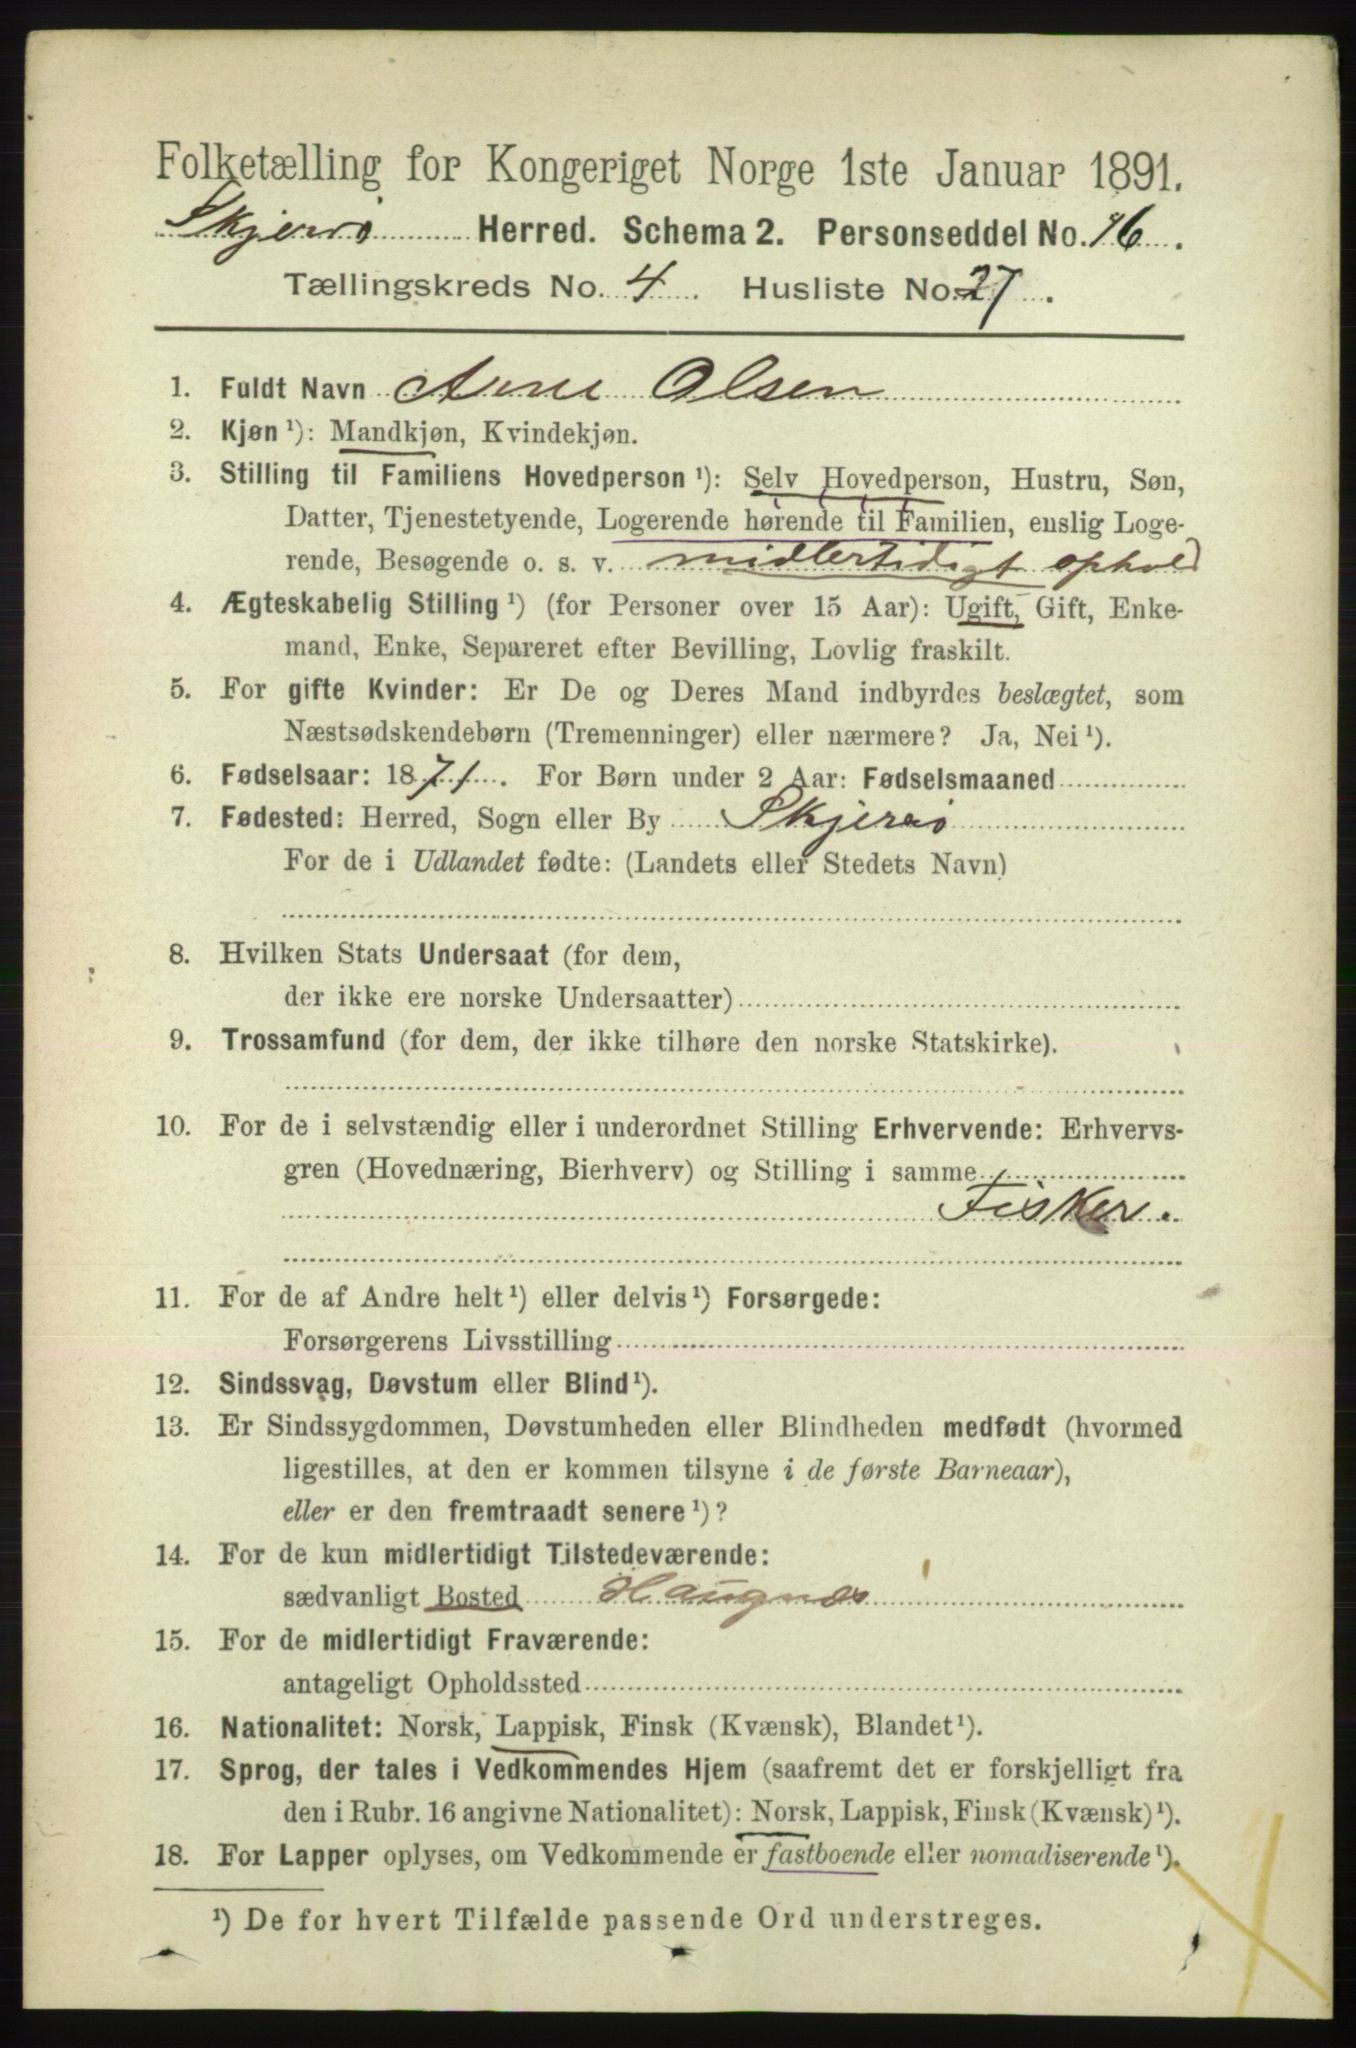 Folketælling for Kongeriget Norge 1ste Januar 1891.
Skjervø Herred. Schema 2. Personseddel No. 16.
Tællingskreds No. 4. Husliste No. 27.
1. Fuldt Navn Arne Olsen
2. Kjøn ¹): Mandkjøn, Kvindekjøn.
3. Stilling til Familiens Hovedperson ¹): Selv Hovedperson, Hustru, Søn,
Datter, Tjenestetyende, Logerende hørende til Familien, enslig Loge-
rende, Besøgende o. s. v. midlertidigt ophold
4. Ægteskabelig Stilling ¹) (for Personer over 15 Aar): Ugift, Gift, Enke-
mand, Enke, Separeret efter Bevilling, Lovlig fraskilt.
5. For gifte Kvinder: Er De og Deres Mand indbyrdes beslægtet, som
Næstsødskendebørn (Tremenninger) eller nærmere? Ja, Nei ¹).
6. Fødselsaar: 1871. For Børn under 2 Aar: Fødselsmaaned
7. Fødested: Herred, Sogn eller By Skjervø
For de i Udlandet fødte: (Landets eller Stedets Navn)
8. Hvilken Stats Undersaat (for dem,
der ikke ere norske Undersaatter)
9. Trossamfund (for dem, der ikke tilhøre den norske Statskirke).
10. For de i selvstændig eller i underordnet Stilling Erhvervende: Erhvervs-
gren (Hovednæring, Bierhverv) og Stilling i samme
Fisker.
11. For de af Andre helt ¹) eller delvis ¹) Forsørgede:
Forsørgerens Livsstilling
12. Sindssvag, Døvstum eller Blind ¹).
13. Er Sindssygdommen, Døvstumheden eller Blindheden medfødt (hvormed
ligestilles, at den er kommen tilsyne i de første Barneaar),
eller er den fremtraadt senere ¹)?
14. For de kun midlertidigt Tilstedeværende:
sædvanligt Bosted Haugnæs
15. For de midlertidigt Fraværende:
antageligt Opholdssted
16. Nationalitet: Norsk, Lappisk, Finsk (Kvænsk), Blandet ¹).
17. Sprog, der tales i Vedkommendes Hjem (saafremt det er forskjelligt fra
den i Rubr. 16 angivne Nationalitet): Norsk, Lappisk, Finsk (Kvænsk) ¹).
18. For Lapper oplyses, om Vedkommende er fastboende eller nomadiserende ¹).
¹) De for hvert Tilfælde passende Ord understreges.